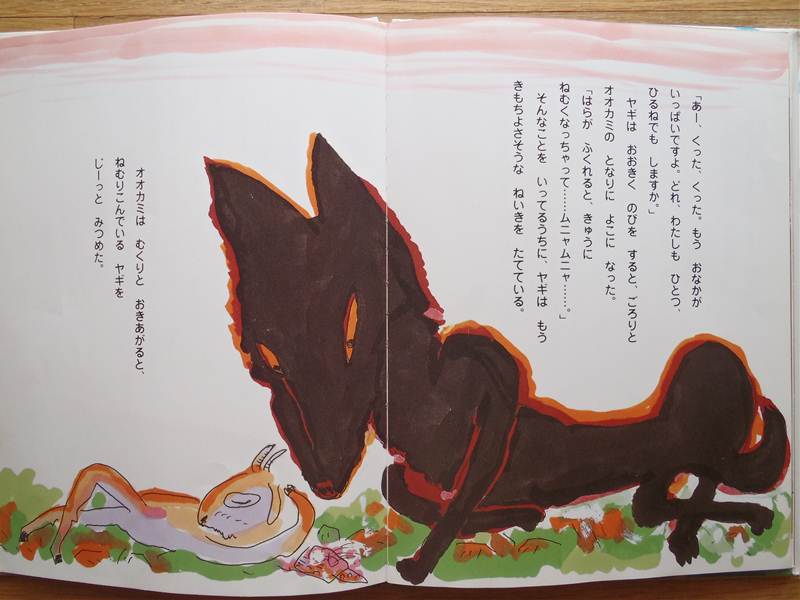 「あー、くった、くった。もう　おなかが
いっぱいですよ。どれ、わたしも　ひとつ、
ひるねでも　しますか。」
ヤギは　おおきく　のびを　すると、ごろりと
オオカミの　となりに　よこに　なった。
「はらが　ふくれると、きゅうに
ねむくなっちゃって……ムニャムニャ……。」
そんなことを　いってるうちに、ヤギは　もう
きもちよさそうな　ねいきを　たてている。
オオカミは　むくりと　おきあがると、
ねむりこんでいる　ヤギを
じーっと　みつめた。